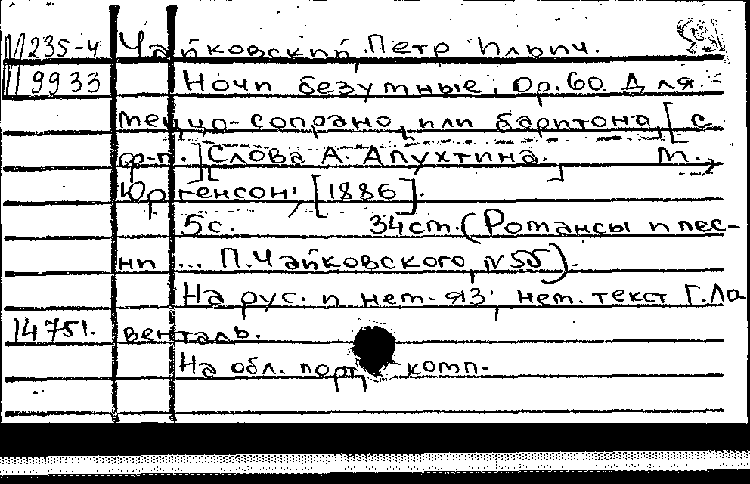 М235-4 Чайковский, Петр Ильич.
9933 Ночи безумные, Ор. 60. Для
меццо-сопрано или баритона [с
ф-п.] [Слова А. Апухтина.] М.,
Юргенсон, [1886].
5с. 34см. (Романсы и пес-
ни ... П. Чайковского, №55).
На рус. и нем. яз; нем. текст Г. Ла
14751. венталь.
На обл. порт. комп.